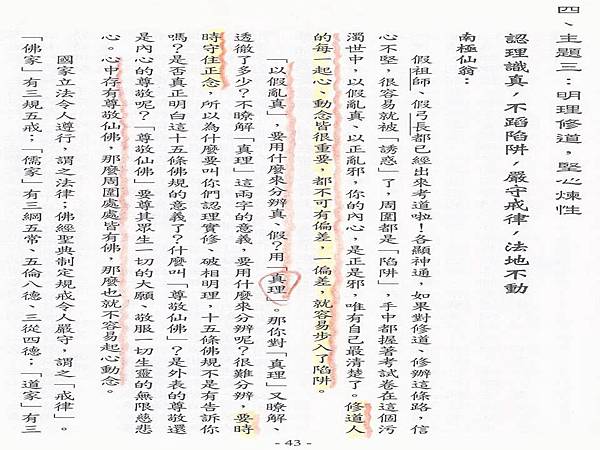 四、主題三：明理修道，堅心煉性
認理識真，不蹈陷阱，嚴守戒律，法地不動
南極仙翁：
假祖師、假弓長都已經出來考道啦！各顯神通，如果對修道、修辦這條路，信
心不堅，很容易就被「誘惑」了，周圍都是「陷阱」，手中都握著考試卷在這個污
濁世中，以假亂真、以正亂邪，你的內心，是正是邪，唯有自己最清楚了。修道人
的每一起心、動念皆很重要，都不可有偏差，一偏差，就容易步入了陷阱。
「以假亂真」，要用什麼來分辨真、假？用「真理」。那你對「真理」又瞭解、
透徹了多少？不瞭解「真理」這兩字的意義，要用什麼來分辨呢？很難分辨，要時
時守住正念，所以為什麼要叫你們認理實修、破相明理，十五條佛規不是有告訴你
嗎？是否真正明白這十五條佛規的意義了？什麼叫「尊敬仙佛」？是外表的尊敬還
是內心的尊敬呢？「尊敬仙佛」要尊其眾生一切的大願、敬服一切生靈的無限慈悲
心。心中存有尊敬仙佛，那麼周圍處處皆有佛，那麼也就不容易起心動念。
國家立法令人遵行，謂之法律；佛經聖典制定規戒令人嚴守，謂之「戒律」。
「佛家」有三規五戒；「儒家」有三綱五常、五倫八德、三從四德；「道家」有三
- 43 -